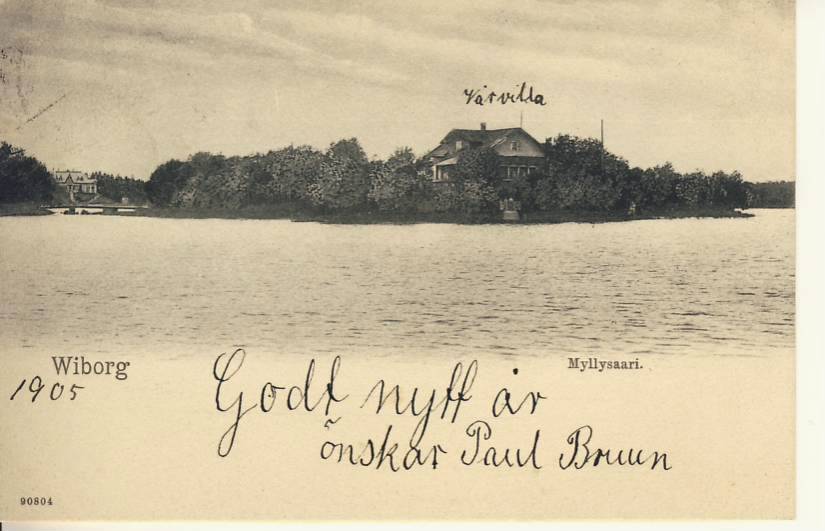 Vår villa
Wiborg
Myllysaari.
1905
Godt nytt år
önskar Paul Bruun
90804